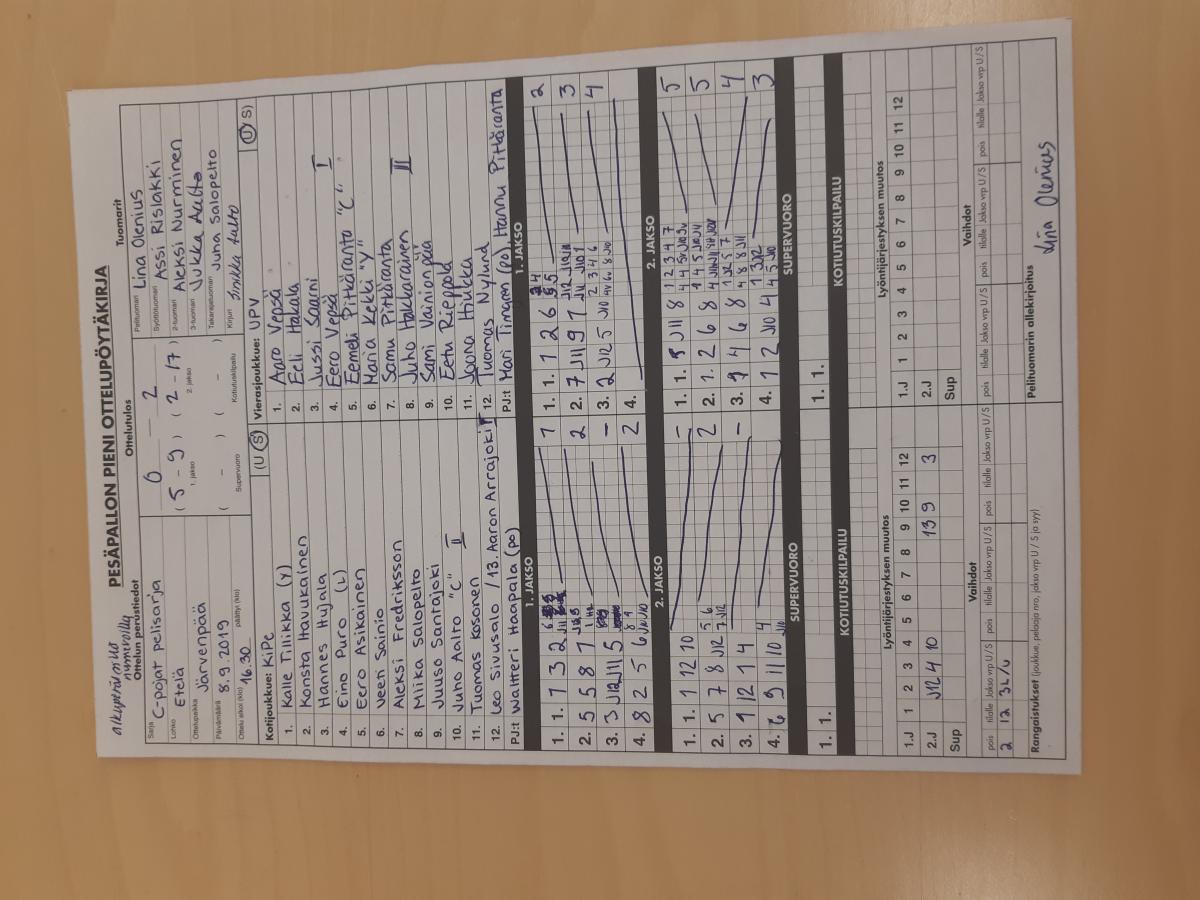 alkuperäisillä numeroilla
PESÄPALLON PIENI OTTELUPÖYTÄKIRJA
Ottelun perustiedot
Ottelutulos
Tuomarit
Sarja C-pojat pelisarja
Lohko Etelä
Ottelupaikka Järvenpää
Päivämäärä 8.9.2019
Ottelu alkoi (klo) 16.30 päättyi (klo)
0 — 2
(5 - 9) (2 - 17)
1. jakso 2. jakso
( - ) ( - )
Supervuoro Kotiutuskilpailu
Pelituomari Liina Olenius
Syöttötuomari Assi Rislakki
2-tuomari Aleksi Nurminen
3-tuomari Jukka Aalto
Takarajatuomari Juha Salopelto
Kirjuri Sirukka Aalto
Kotijoukkue: KiPe (U S)
1. Kalle Tillikka (Y)
2. Konsta Havukainen
3. Hannes Hujala
4. Eino Puro (L)
5. Eero Asikainen
6. Veeti Sainio
7. Aleksi Fredriksson
8. Miika Salopelto
9. Juuso Santajoki
10. Juho Aalto "C" II
11. Tuomas Kosonen
12. Leo Sivusalo / 13. Aaron Arrajoki
PJ:t Waltteri Haapala (po)
Vierasjoukkue: UPV (U S)
1. Aaro Vepsä
2. Eeli Hakala
3. Jussi Saarni
4. Eero Vepsä I
5. Eemeli Pitkäranta "C"
6. Maria Kekki "Y"
7. Samu Pitkäranta
8. Juho Hakkarainen II
9. Sami Vainionpää
10. Eetu Rieppola
11. Joona Hiukka
12. Tuomas Nylund
PJ:t Mari Timonen (po), Hannu Pitkäranta
1. JAKSO
1. 1. 1 3 2 1
2. 5 5 8 7 2
3. 3 J12 J11 5 -
4. 8 2 5 6 2
2. JAKSO
1. 1. 1 12 10 -
2. 5 7 8 J12 2
3. 9 12 1 4 -
4. 6 9 11 10
SUPERVUORO
1. 1.
KOTIUTUSKILPAILU
1. JAKSO
1. 1. 1 2 6 5 2
2. 7 J11 9 1 3
3. 2 J12 5 J10 4
4.
2. JAKSO
1. 1. J11 8 5
2. 1. 2 6 8 5
3. 9 4 6 8 4
4. 1 2 J10 4 3
SUPERVUORO
1. 1.
KOTIUTUSKILPAILU
Lyöntijärjestyksen muutos
1 2 3 4 5 6 7 8 9 10 11 12
1.J
2.J J12 4 10 13 9 3
Sup
Vaihdot
pois tilalle Jakso vrp U / S pois tilalle Jakso vrp U / S pois tilalle Jakso vrp U / S
2 12
Lyöntijärjestyksen muutos
1 2 3 4 5 6 7 8 9 10 11 12
1.J
2.J
Sup
Vaihdot
pois tilalle Jakso vrp U / S pois tilalle Jakso vrp U / S pois tilalle Jakso vrp U / S
Rangaistukset (joukkue, pelaaja nro, jakso vrp U / S ja syy)
Pelituomarin allekirjoitus
Liina Olenius